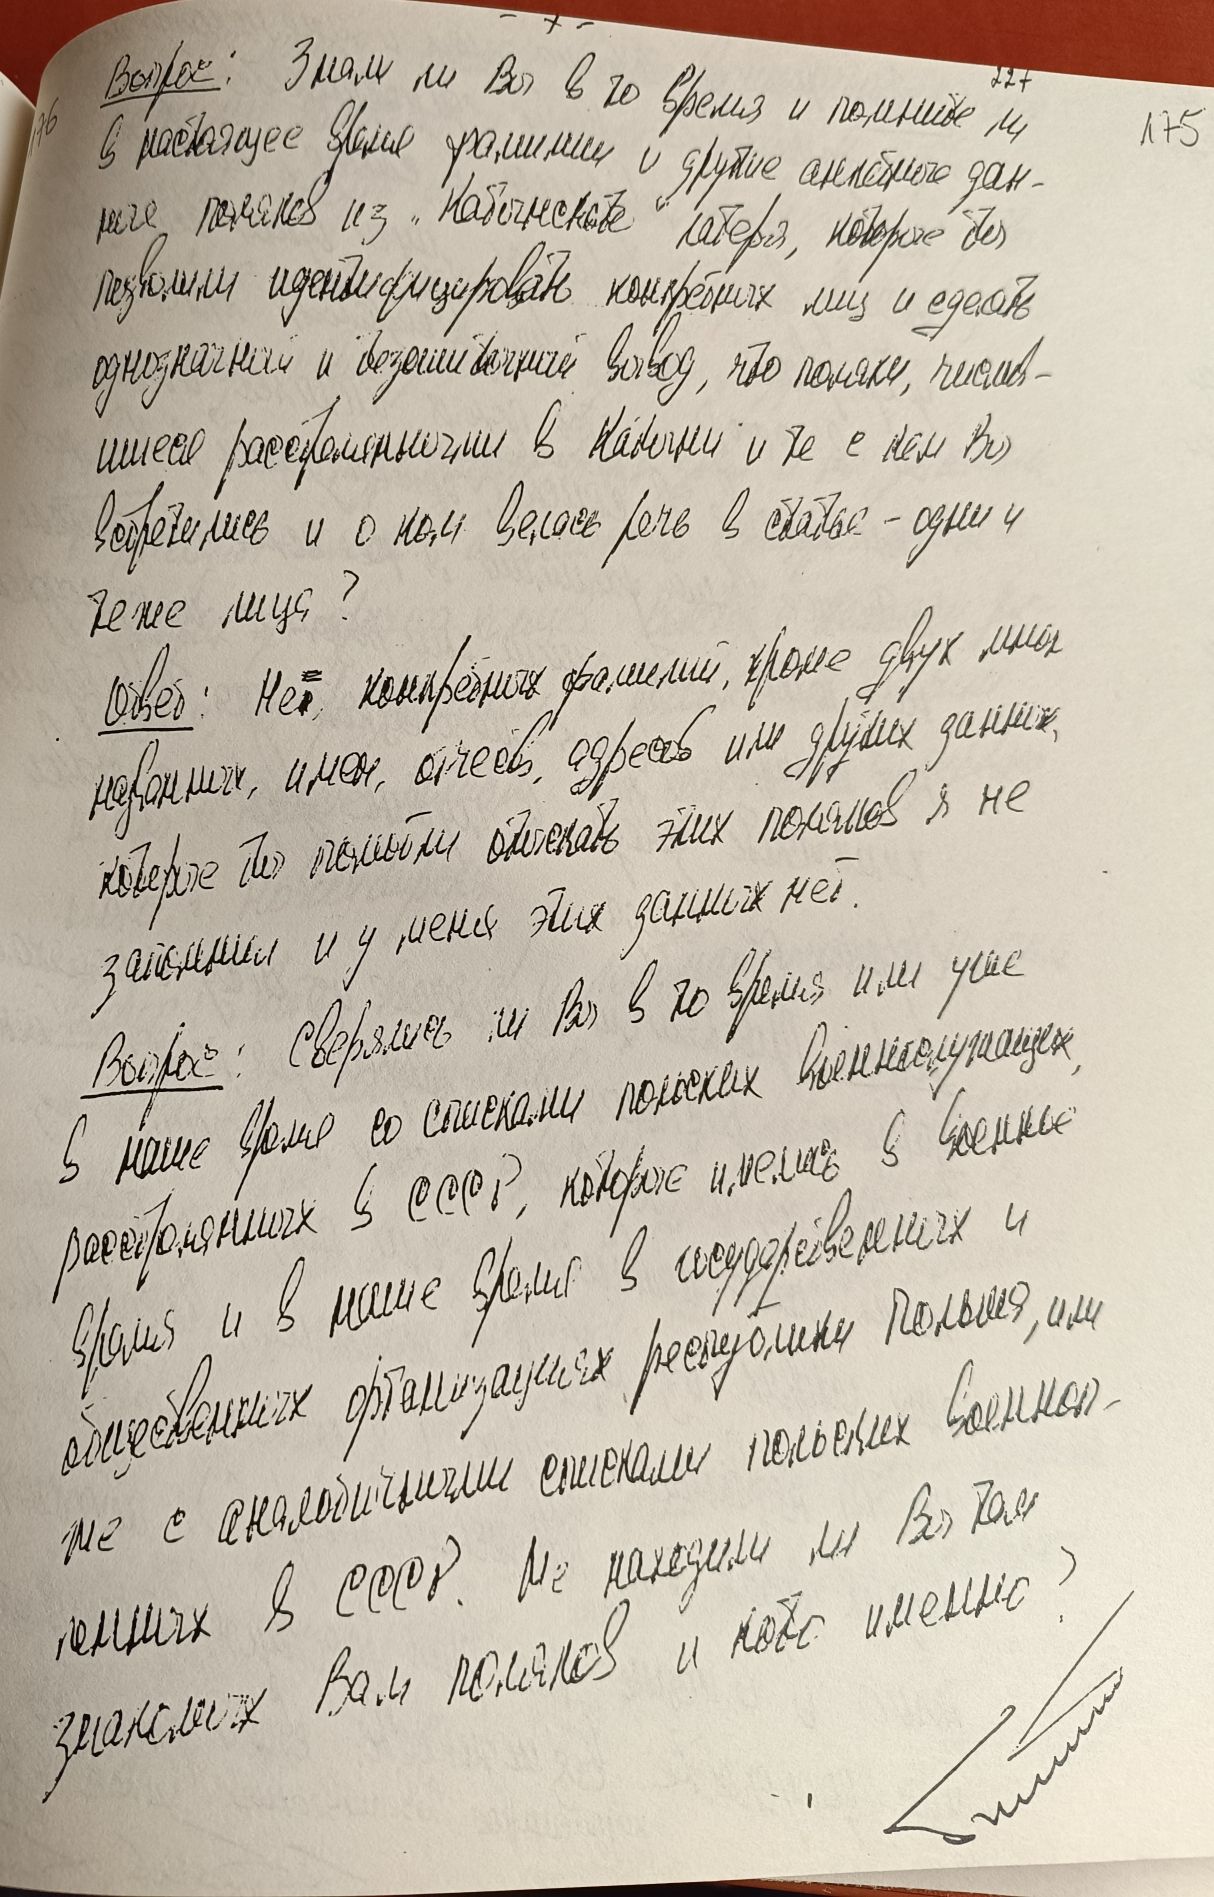 - 7 -
227
175
176
Вопрос: Знали ли Вы в то время и помните ли
в настоящее время фамилии и другие анкетные дан-
ные поляков из "Кабинского" лагеря, которые бы
позволили идентифицировать конкретных лиц и сделать
однозначный и безошибочный вывод, что поляки, числив-
шиеся расстрелянными в Катыни и те с кем Вы
встретились и о ком велась речь в статье - одни и
те же лица?
Ответ: Нет, конкретных фамилий, кроме двух мной
названных, имен, отчеств, адресов или других данных,
которые бы помогли отыскать этих поляков я не
запомнил и у меня этих данных нет.
Вопрос: Сверялись ли Вы в то время или уже
в наше время со списками польских военнослужащих,
расстрелянных в СССР, которые имелись в военные
время и в наше время в государственных и
общественных организациях республики Польша, или
же с аналогичными списками польских военноп-
ленных в СССР. Не находили ли Вы там
знакомых Вам поляков и кого именно?